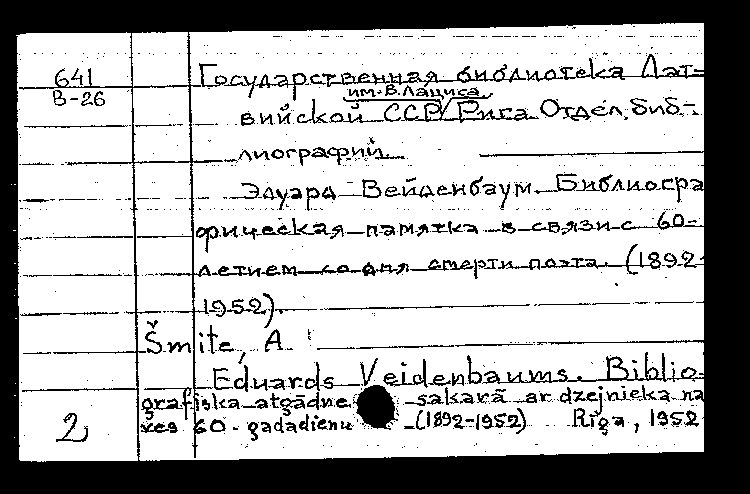 641
В-26
Государственная библиотека Лат-
им. В. Лациса
вийской ССР/Рига Отдел. биб-
лиографий.
Эдуард Вейденбаум. Библиогра
фическая памятка в связи с 60-
летием со дня смерти поэта. (1892-
1952).
Šmite, A
Eduards Veidenbaums. Biblio-
grafiska atgādne sakarā ar dzejnieka na
ves 60. gadadienu (1892-1952) Rīga, 1952
2